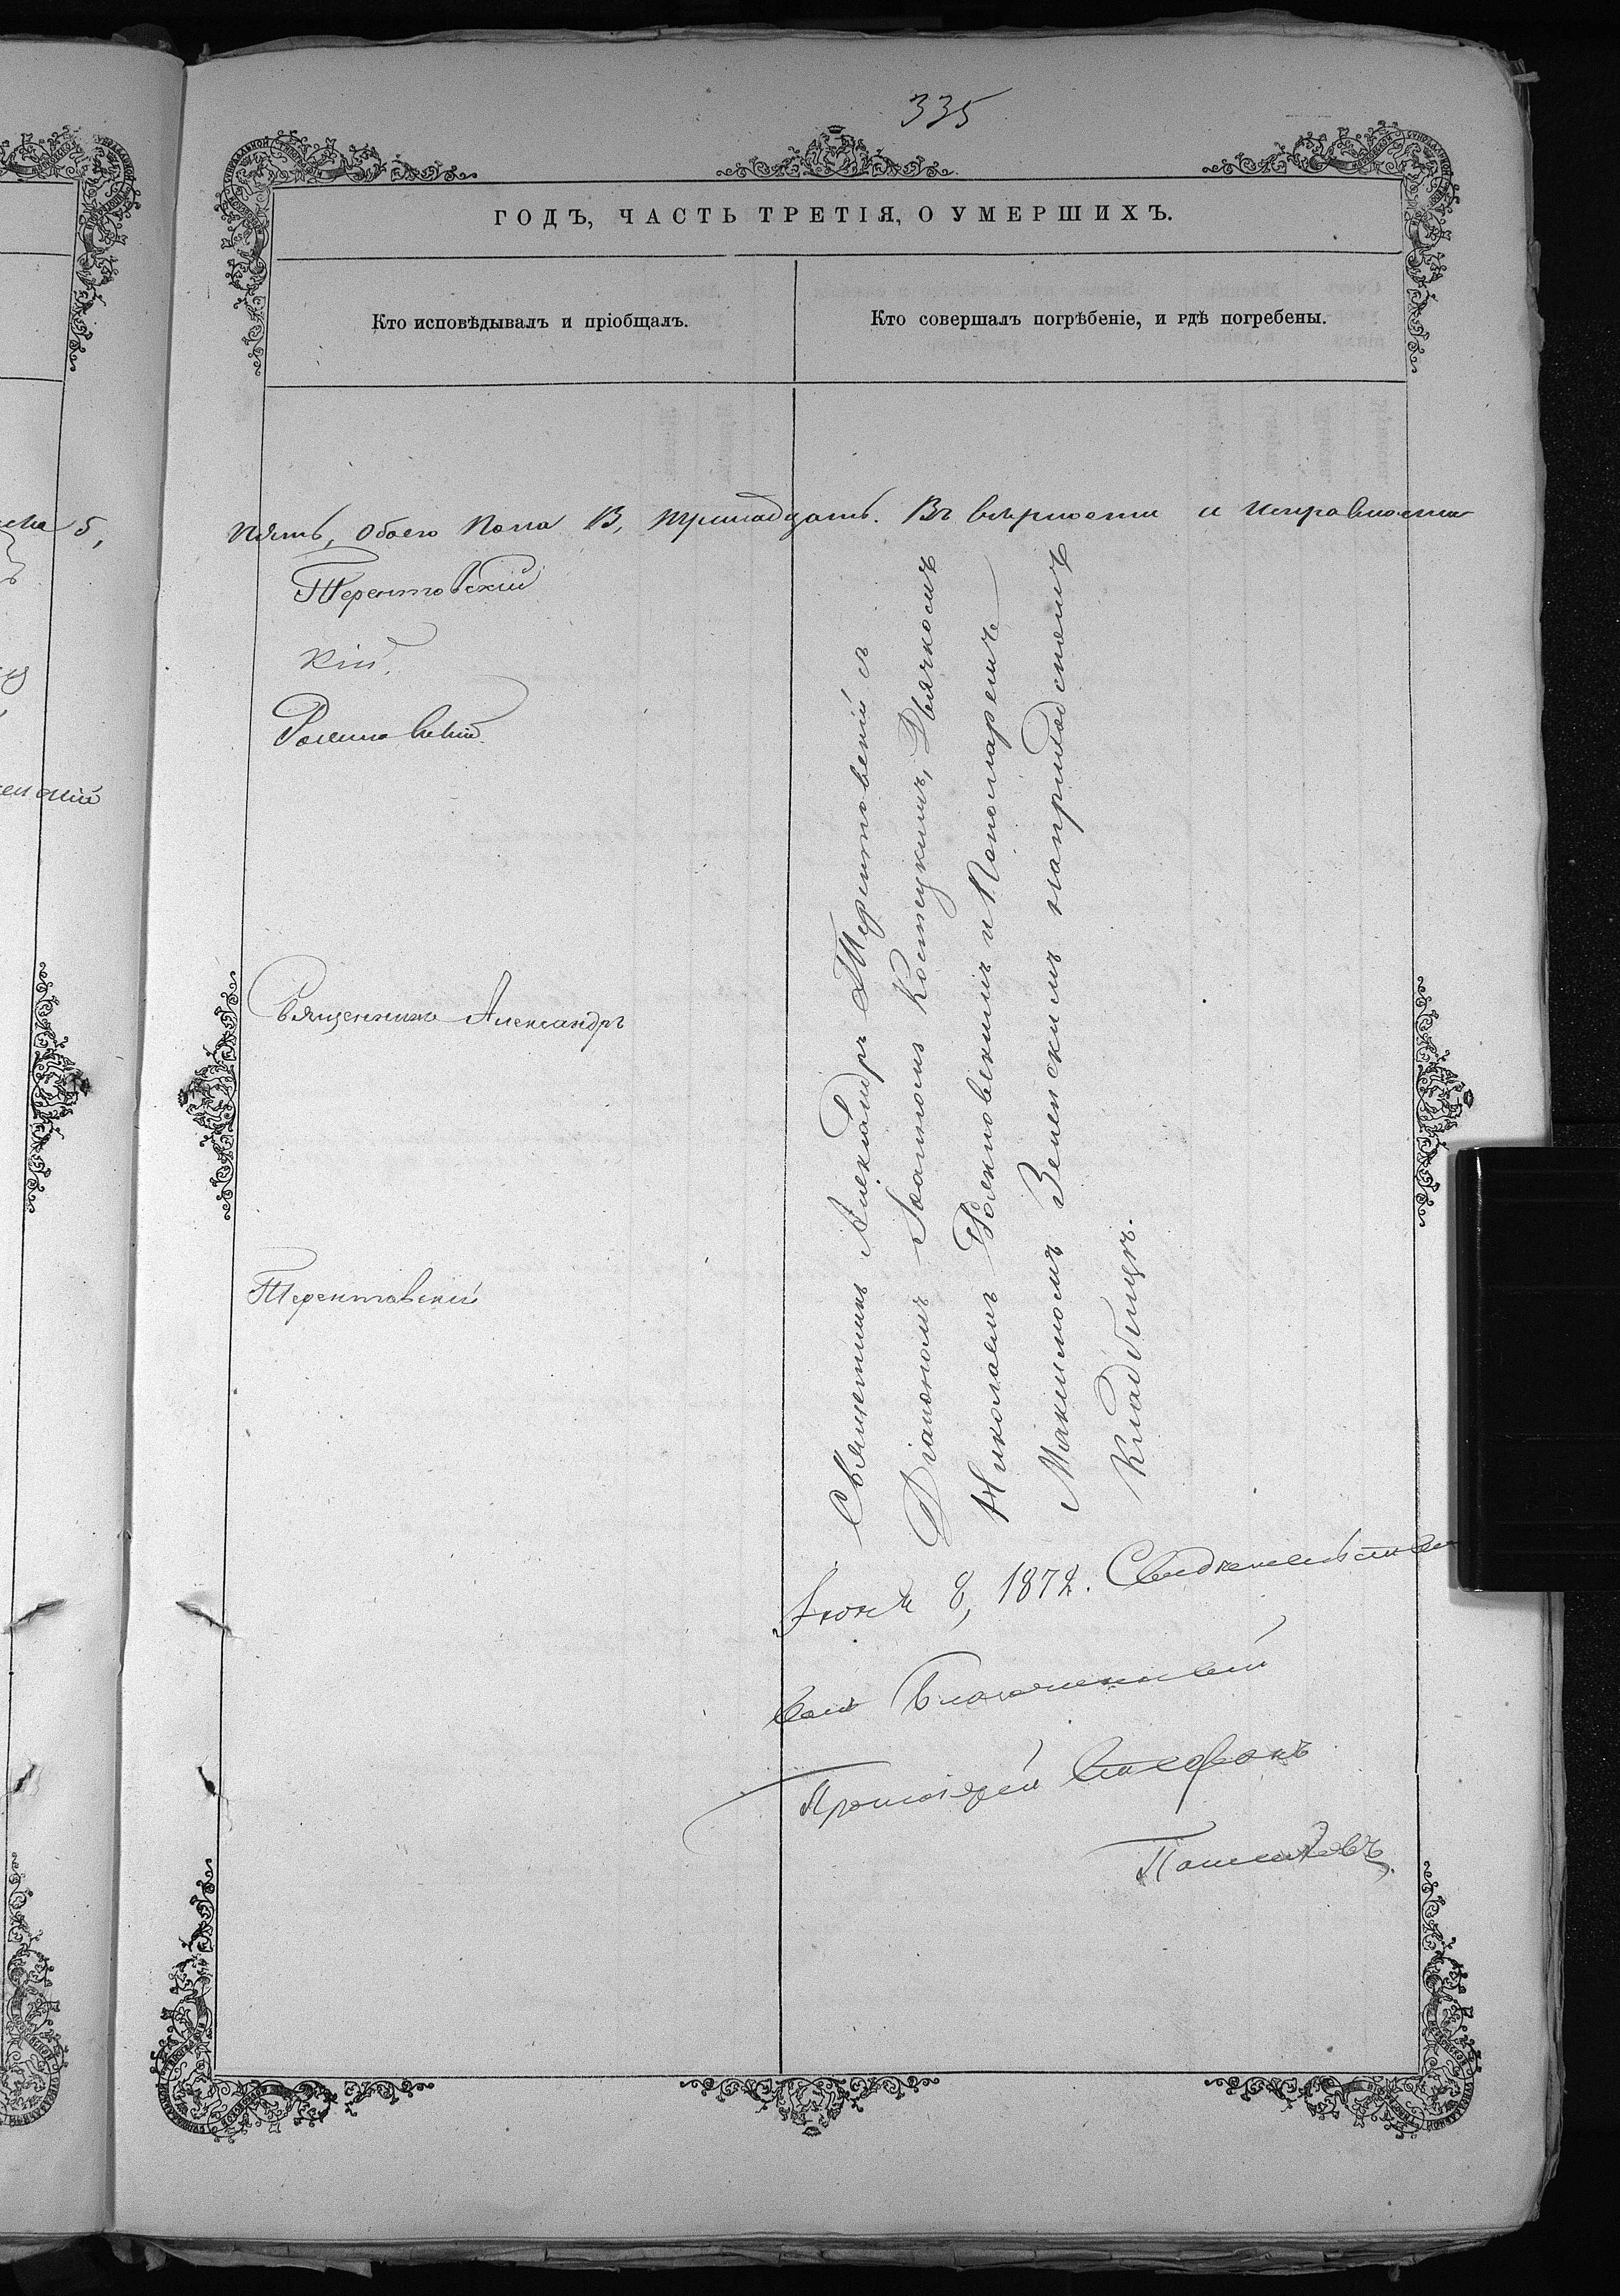 335
ГОДЪ, ЧАСТЬ ТРЕТІЯ, О УМЕРШИХЪ.
Кто исповѣдывалъ и пріобщалъ.
Кто совершалъ погрѣбеніе, и гдѣ погребены.
5,
пять, обоего пола 13, тринадцать. Въ вѣрности и исправности
Терентовскій
кій.
Священникъ Александръ
Терентовскій
Священникъ Александръ Терентовскій съ
Діакономъ Іоанномъ Костуцкимъ, Дьячкомъ
Николаемъ и Пономаремъ
Максимомъ Зеленскимъ на приходскомъ
Кладбищѣ.
Іюня 8, 1872. Свидѣтельство
валъ Благочинный
Протоіерей Стефанъ